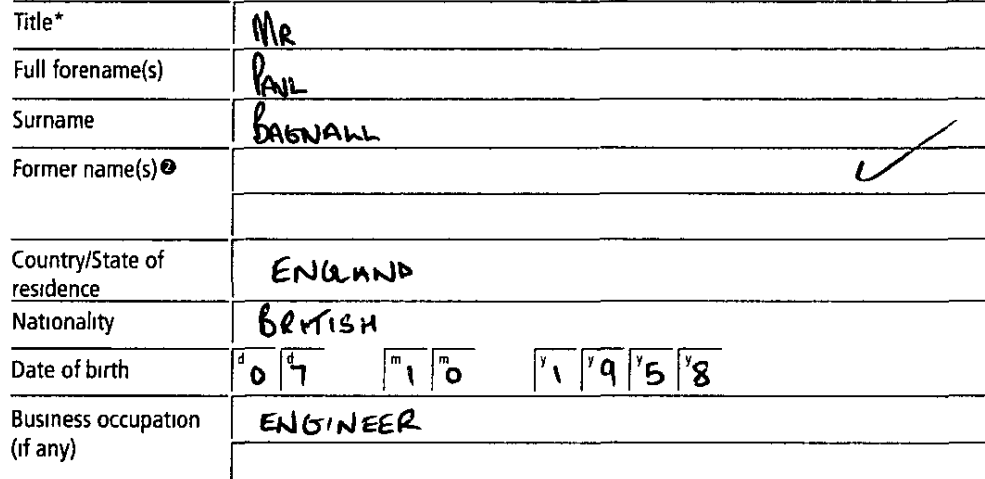 Title* MR
Full forename(s) PAUL
Surname BAGNALL
Former name(s) ❷
Country/State of
residence ENGLAND
Nationality BRITISH
Date of birth d0 d7 m1 m0 y1 y9 y5 y8
Business occupation ENGINEER
(if any)